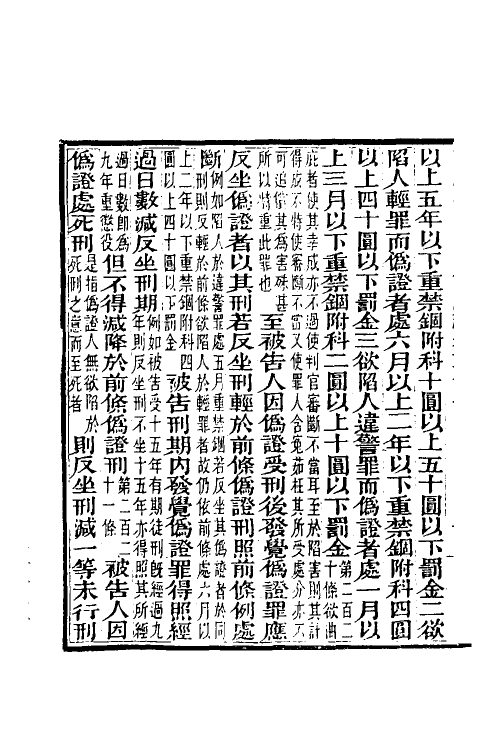 以上五年以下重禁錮附科十圓以上五十圓以下罰金二欲
陷人輕罪而僞證者處六月以上二年以下重禁錮附科四圓
以上四十圓以下罰金三欲陷人違警罪而僞證者處一月以
上三月以下重禁錮附科二圓以上十圓以下罰金第二百二十條欲曲
庇者使其幸成亦不過使判官審斷不當耳至於陷害則其計
得放不特使審斷不當又使罪人含冤茹枉其所受處分亦不
可追償其爲害殊甚
所以特重此罪也至被告人因僞證受刑後發覺僞證罪應
反坐僞證者以其刑若反坐刑輕於前條僞證刑照前條例處
斷例如陷人於違警罪處五月重禁錮若反坐其僞證者於同
刑則反輕於前條欲陷人於輕罪者故仍依前條處六月以
上二年以下重禁錮附科四
圓以上四十圓以下罰金被告刑期內發覺僞證罪得照經
過日數減反坐刑期例如被告受十五年有期徒刑既經過九
年則反坐刑不坐十五年亦得照其所經
過日數卽爲
九年重懲役但不得減降於前條僞證刑第二百二十一條被告人因
僞證處死刑是指僞證人無欲陷於死刑之意而至死者則反坐刑減一等未行刑